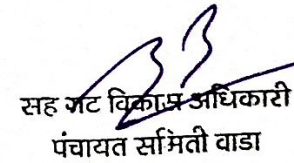 सह गट विकास अधिकारी
पंचायत समिती वाडा